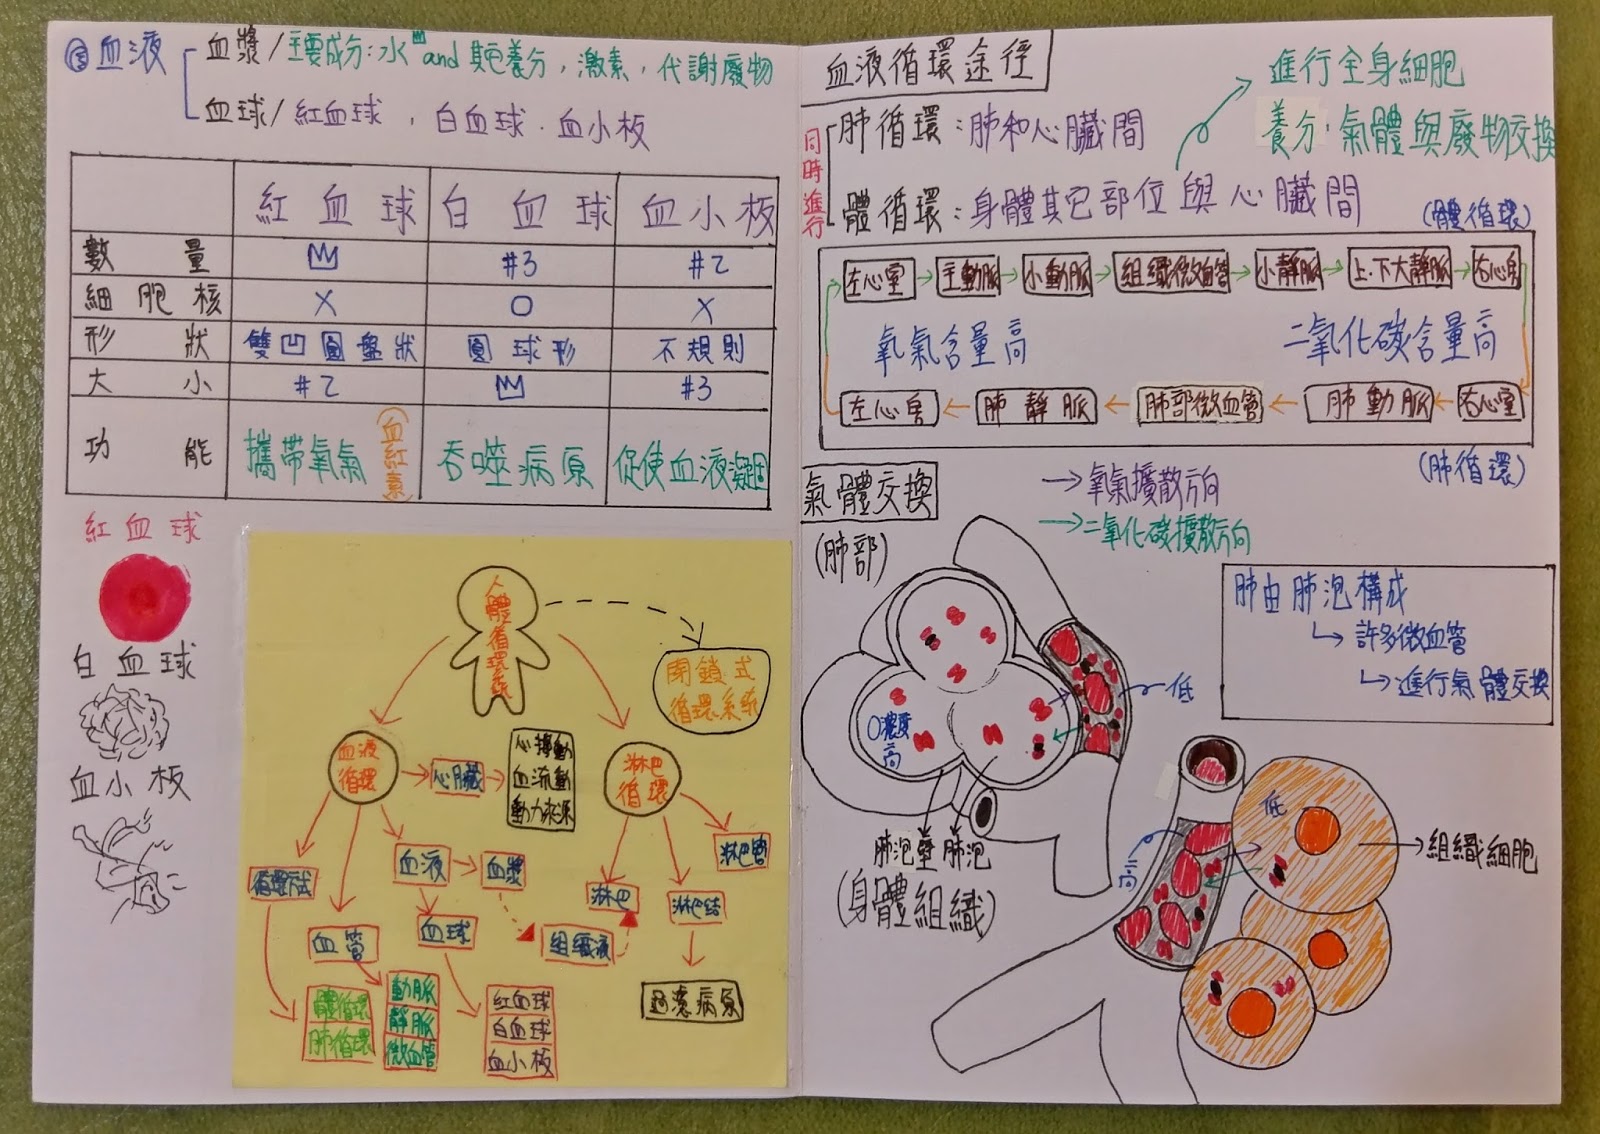 血液
血漿/主要成分:水 and 其它養分,激素,代謝廢物
血球/紅血球,白血球.血小板
紅血球 白血球 血小板
數量 #3 #2
細胞核 X O X
形狀 雙凹圓盤狀 圓球形 不規則
大小 #2 #3
功能 攜帶氧氣(血紅素) 吞噬病原 促使血液凝固
紅血球
白血球
血小板
人體循環系統
閉鎖式
循環系統
血液
循環
心臟
心搏動
血流動
動力來源
淋巴
循環
循環方式
血管
血液
血漿
血球
組織液
淋巴
淋巴結
淋巴管
過濾病原
體循環
肺循環
動脈
靜脈
微血管
紅血球
白血球
血小板
血液循環途徑
同時進行
肺循環:肺和心臟間
體循環:身體其它部位與心臟間
進行全身細胞
養分.氣體與廢物交換
(體循環)
左心室→主動脈→小動脈→組織微血管→小靜脈→上.下大靜脈→右心房
氧氣含量高 二氧化碳含量高
左心房←肺靜脈←肺部微血管←肺動脈←右心室
(肺循環)
氣體交換
(肺部)
→氧氣擴散方向
→二氧化碳擴散方向
肺由肺泡構成
許多微血管
進行氣體交換
低
O濃度
高
肺泡壁 肺泡
(身體組織)
高
低
組織細胞